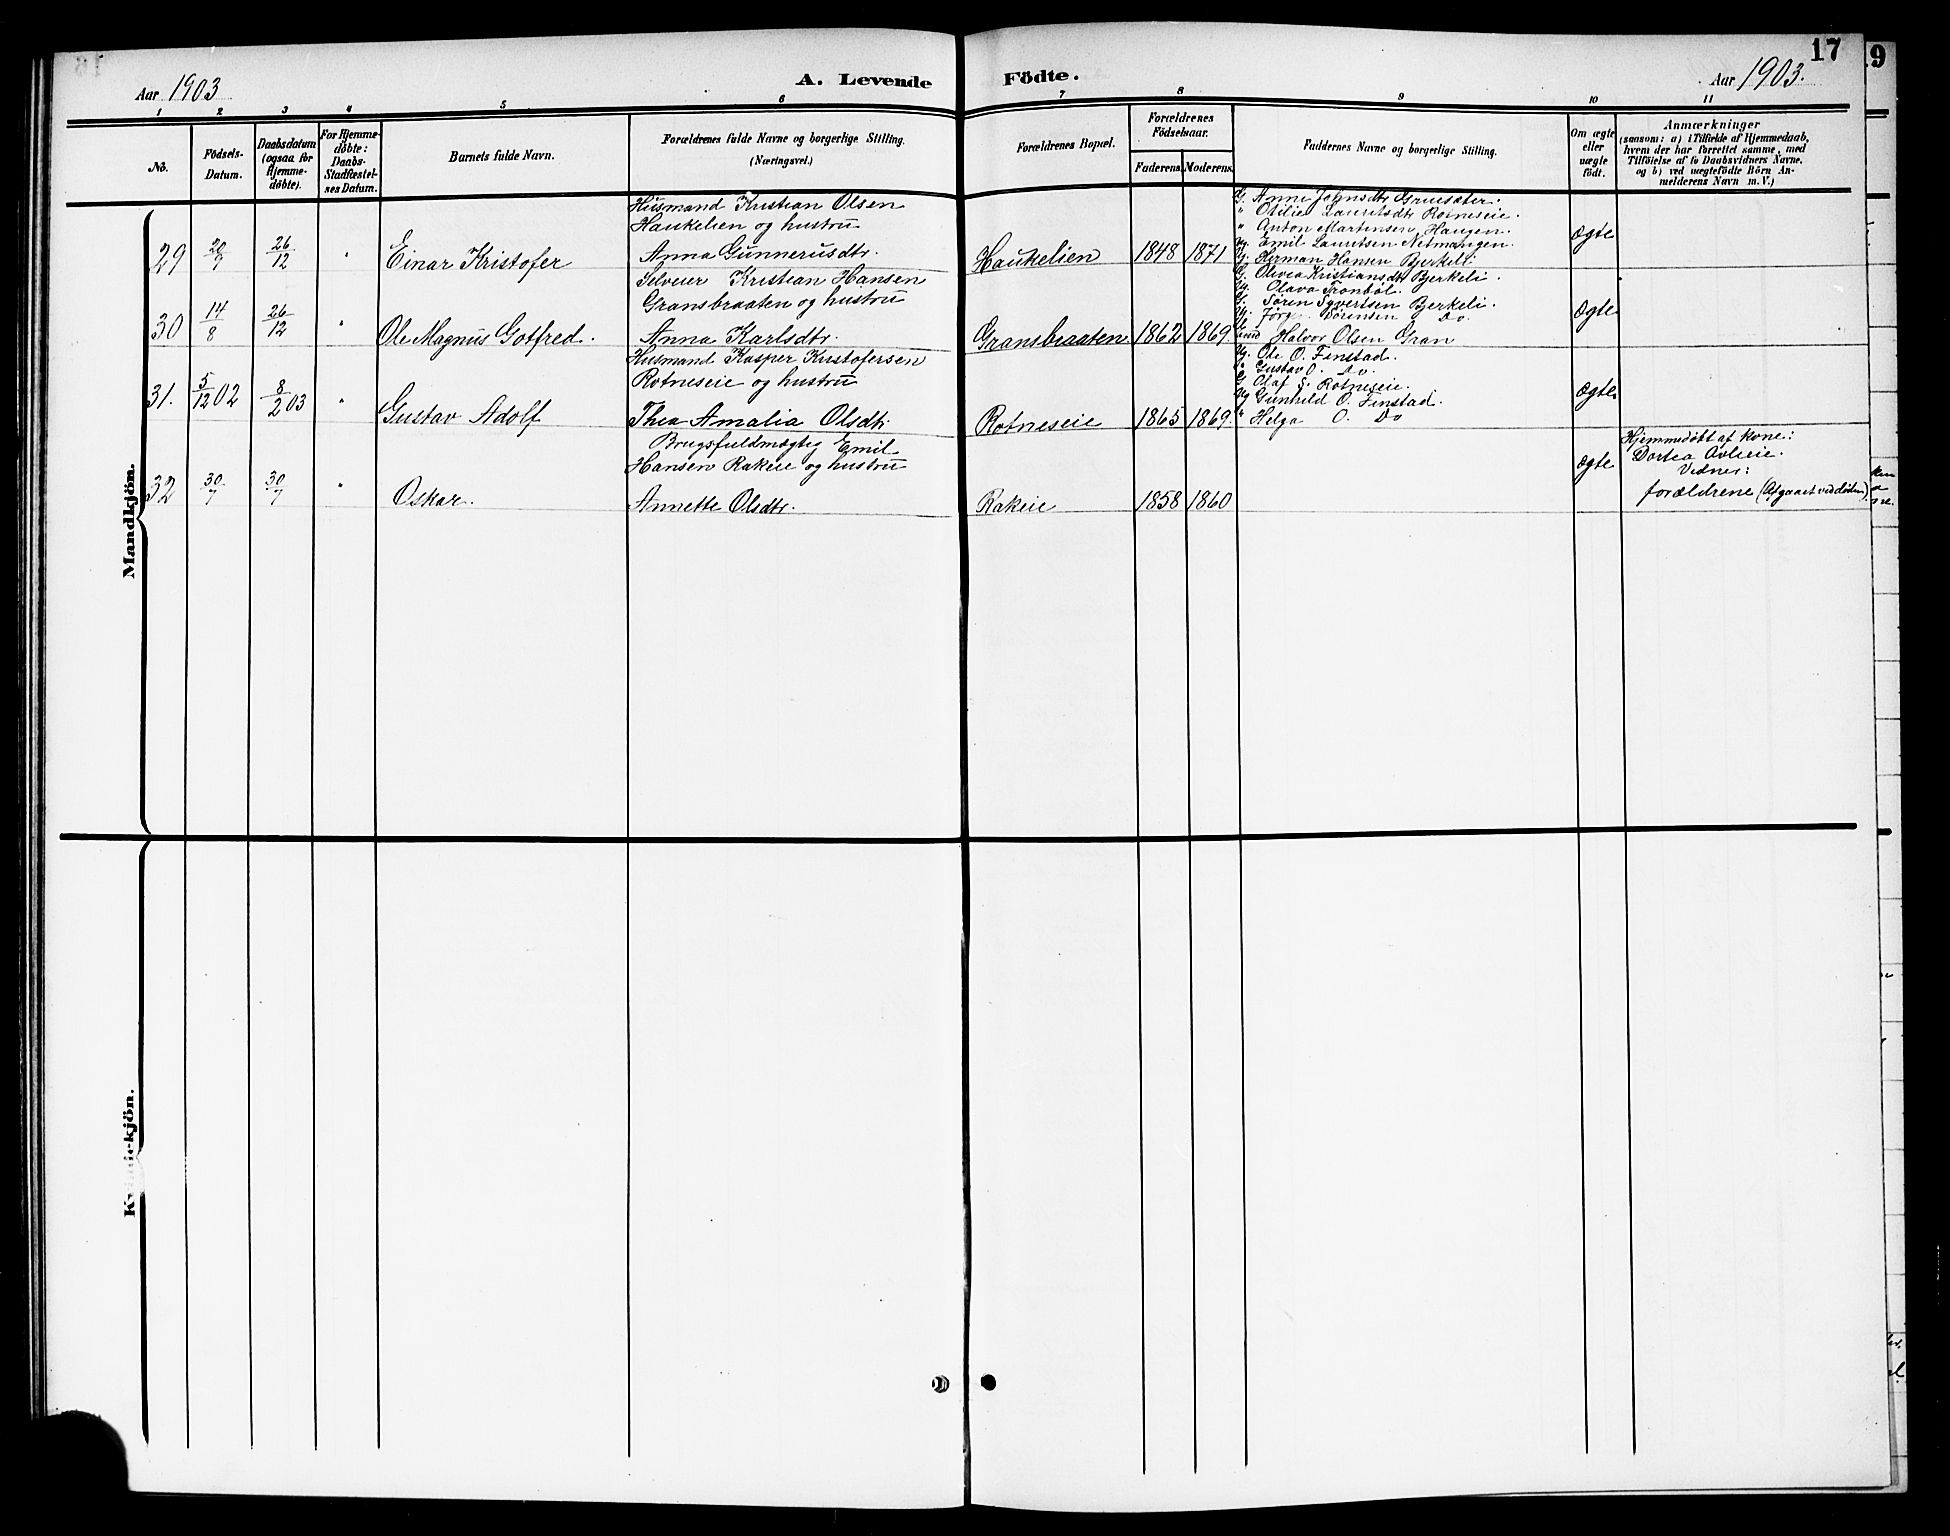 17
Aar 1903
A. Levende Födte.
Aar 1903.
1 2 3 4 5 6 7 8 9 10 11
No.
Födsels-
Datum.
Daabsdatum
(ogsaa for
Hjemme-
döbte).
For Hjemme-
döbte:
Daabs-
Stadfæstel-
ses Datum.
Barnets fulde Navn.
Forældrenes fulde Navne og borgerlige Stilling.
(Næringsvei.)
Forældrenes Bopæl.
Forældrenes
Födselsaar.
Faderens. Moderens.
Faddernes Navne og borgerlige Stilling.
Om ægte
eller
uægte
födt.
Anmærkninger
(saasom: a) i Tilfælde af Hjemmedaab,
hvem der har forrettet samme, med
Tilföielse af to Daabsvidners Navne,
og b) ved uægtefödte Börn An-
melderens Navn m. V.)
Mandkjön.
29 20/9 26/12 " Einar Kristofer
Husmand Kristian Olsen
Haukelien og hustru
Anna Gunnerusdtr.
Haukelien 1848 1871
G. Anne Johnsdtr Gruesæter.
" Otilie Lauritsdtr Rotneseie.
" Anton Martinsen Haugen.
Ug. Emil Lauritsen Nitmangen.
Ug. Herman Hansen Bjerkeli
ægte
30 14/8 26/12 " Ole Magnus Gotfred.
Selveier Kristian Hansen
Gransbraaten og hustru
Anna Karlsdtr.
Gransbraaten 1862 1869
G. Olivea Kristiansdtr Bjerkeli.
Ug. Olava Tronböl.
G. Søren Syvertsen Bjerkeli.
Ug. Jørg. Sørensen Do
Halvor Olsen Gran
ægte
31. 5/12 02 8/2 03 " Gustav Adolf
Husmand Kasper Kristofersen
Rotneseie og hustru
Thea Amalia Olsdtr.
Rotneseie 1865 1869.
Ug. Ole O. Finstad.
" Gustav O. Do.
G Olaf S. Rotneseie.
Ug Gunhild O. Finstad.
" Helga O. Do
ægte
32 30/7 30/7 " Oskar.
Brugsfuldmægtig Emil
Hansen Rakeie og hustru
Annette Olsdtr.
Rakeie 1858 1860
ægte
Hjemmedøbt af kone:
Dortea Avleie.
Vidner:
forældrene (Afgaaet ved døden).
Kvindekjön.
19